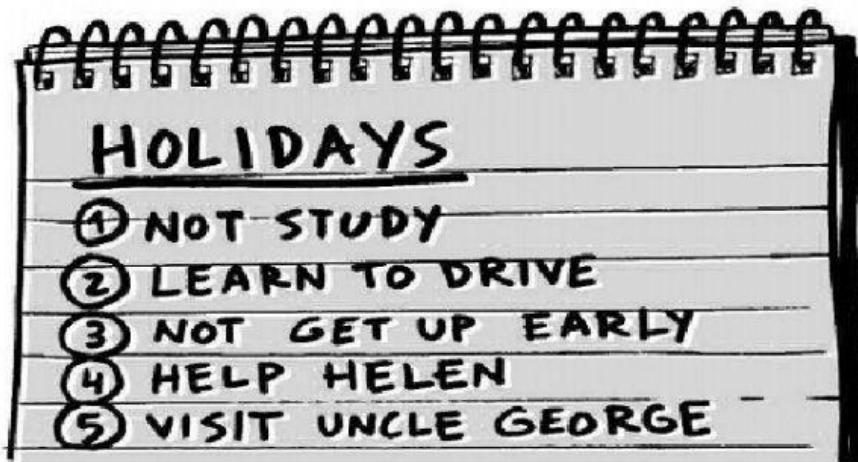 HOLIDAYS
① NOT STUDY
② LEARN TO DRIVE
③ NOT GET UP EARLY
④ HELP HELEN
⑤ VISIT UNCLE GEORGE